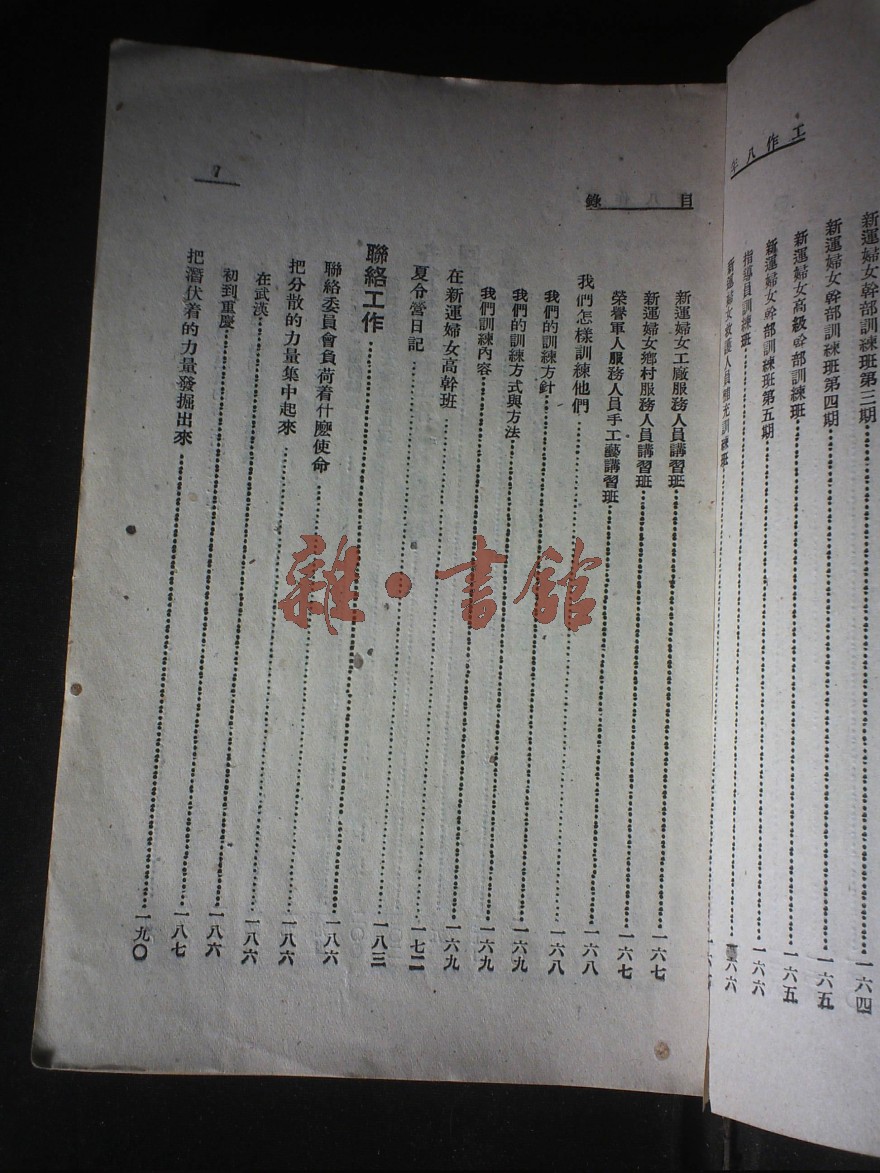 工作八年
新運婦女幹部訓練班第三期……一六四
新運婦女幹部訓練班第四期……一六五
新運婦女高級幹部訓練班……一六五
新運婦女幹部訓練班第五期……一六六
指導員訓練班……六六
新運婦女救護人員補充訓練班……一六
目錄
新運婦女工廠服務人員講習班……一六七
新運婦女鄉村服務人員講習班……一六七
榮譽軍人服務人員手工藝講習班……一六八
我們怎樣訓練他們……一六八
我們的訓練方針……一六九
我們的訓練方式與方法……一六九
我們訓練內容……一六九
在新運婦女高幹班……一七二
夏令營日記……一八三
聯絡工作……一八六
聯絡委員會負荷着什麼使命……一八六
把分散的力量集中起來……一八六
在武漢……一八六
初到重慶……一八七
把潛伏着的力量發掘出來……一九〇
7
雜·書館